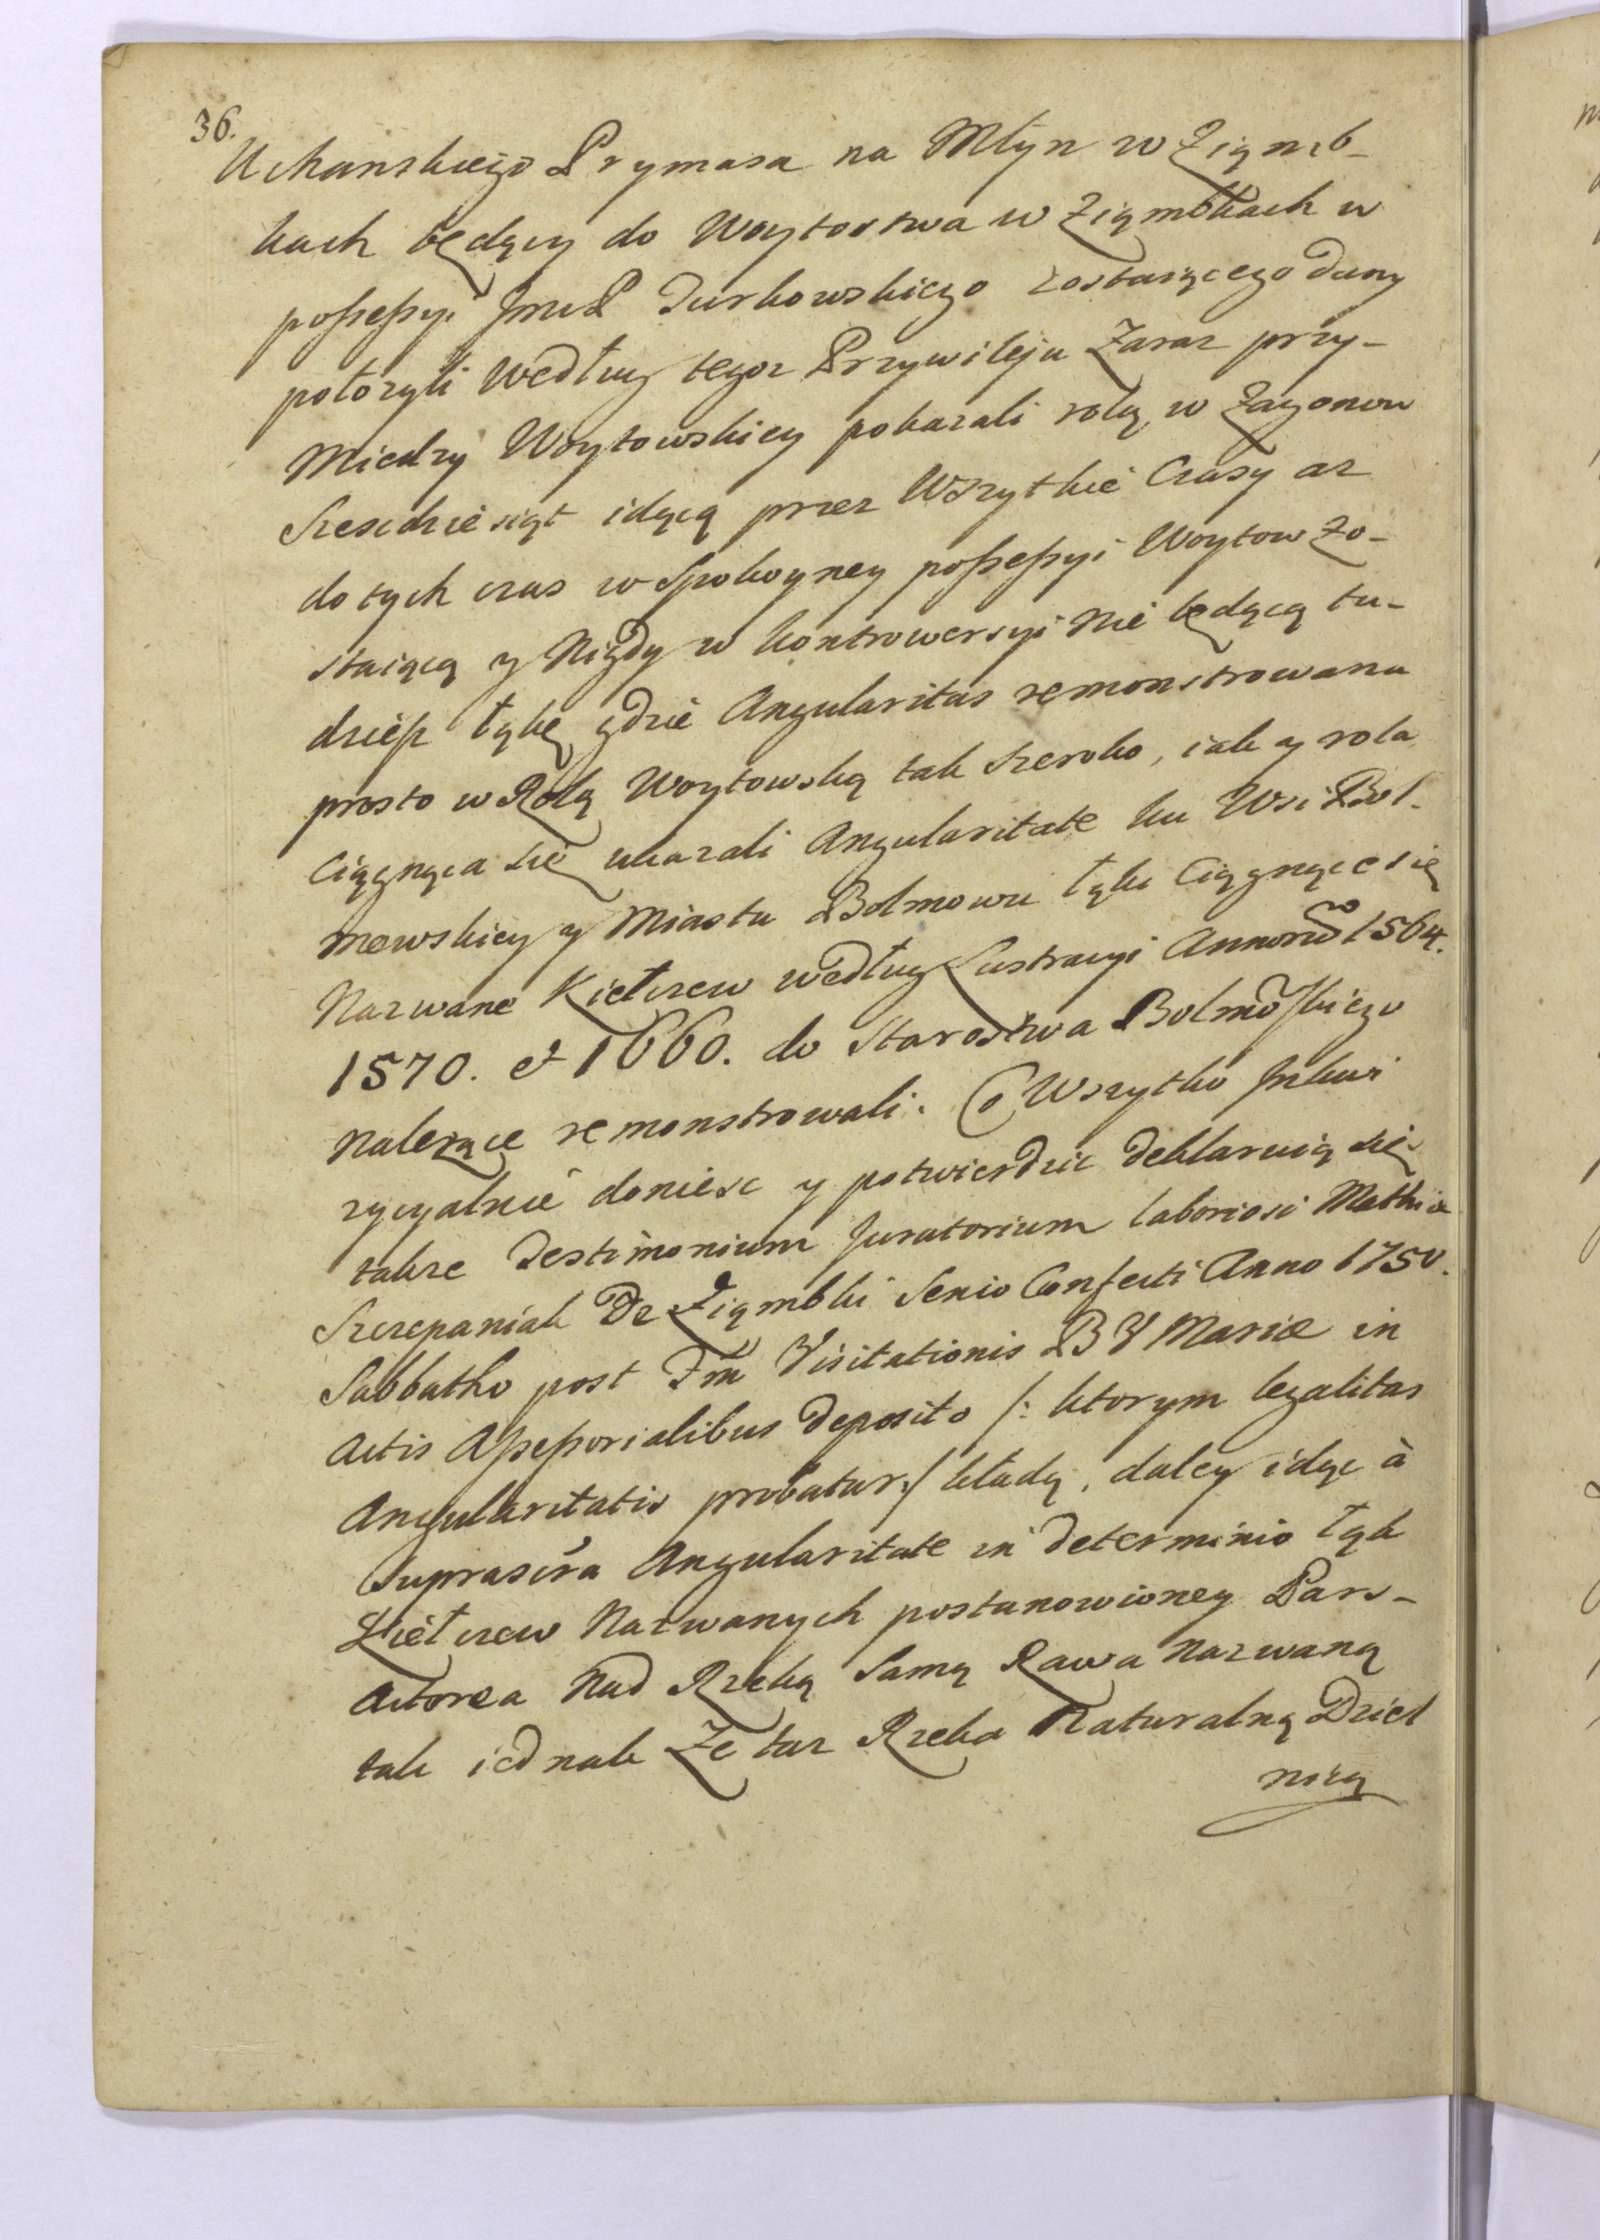 36.
Uchanskiego Prymasa na Młyn w Ziąmb-
kach będący do Woytostwa w Ziąmbkach w
possessyi JmcP Turkowskiego zostaiącego dany
położyli według tegoz Przywileju Zaraz przy-
Miedzy Woytowskiey pokazali rolą w Zagonow
Szescdziesiąt idącą przez Wszytkie Czasy az
do tych czas w Spokoyney possessyi Woytow Zo-
staiącą y Nigdy w kontrowersyi nie będącą tu-
dziesz łąkę gdzie Angularitas remonstrowana
prosto w Rolą Woytowską tak szeroko, iak y rola
Ciągnąca się ukazali Angularitate ku Wsi Bol-
mowskiey y Miastu Bolmowu łąki Ciągnące się
Nazwane Kiełczew według Lustracyi Annorum 1564.
1570. et 1660. do Starostwa Bolmowskiego
Nalezące remonstrowali. Co Wszytko Inkwi
zycyalnie doniesc y potwierdzic deklaruią się
takze Testimonium Juratorium laboriosi Mathiæ
Szczepaniak De Ziąmbki Senio Confecti Anno 1750.
Sabbatho post Fm Visitationis B V Mariæ in
Actis Assessorialibus deposito /: ktorym legalitas
Angularitatis probatur :/ kładą, daley idąc à
Suprascra Angularitate in determinio łąk
Kiełczew Nazwanych postanowioney Pars-
Actorea Nad Rzeką Samą Rawa Nazwaną
tak iednak Ze taz Rzeka Naturalną Dziel
nicą